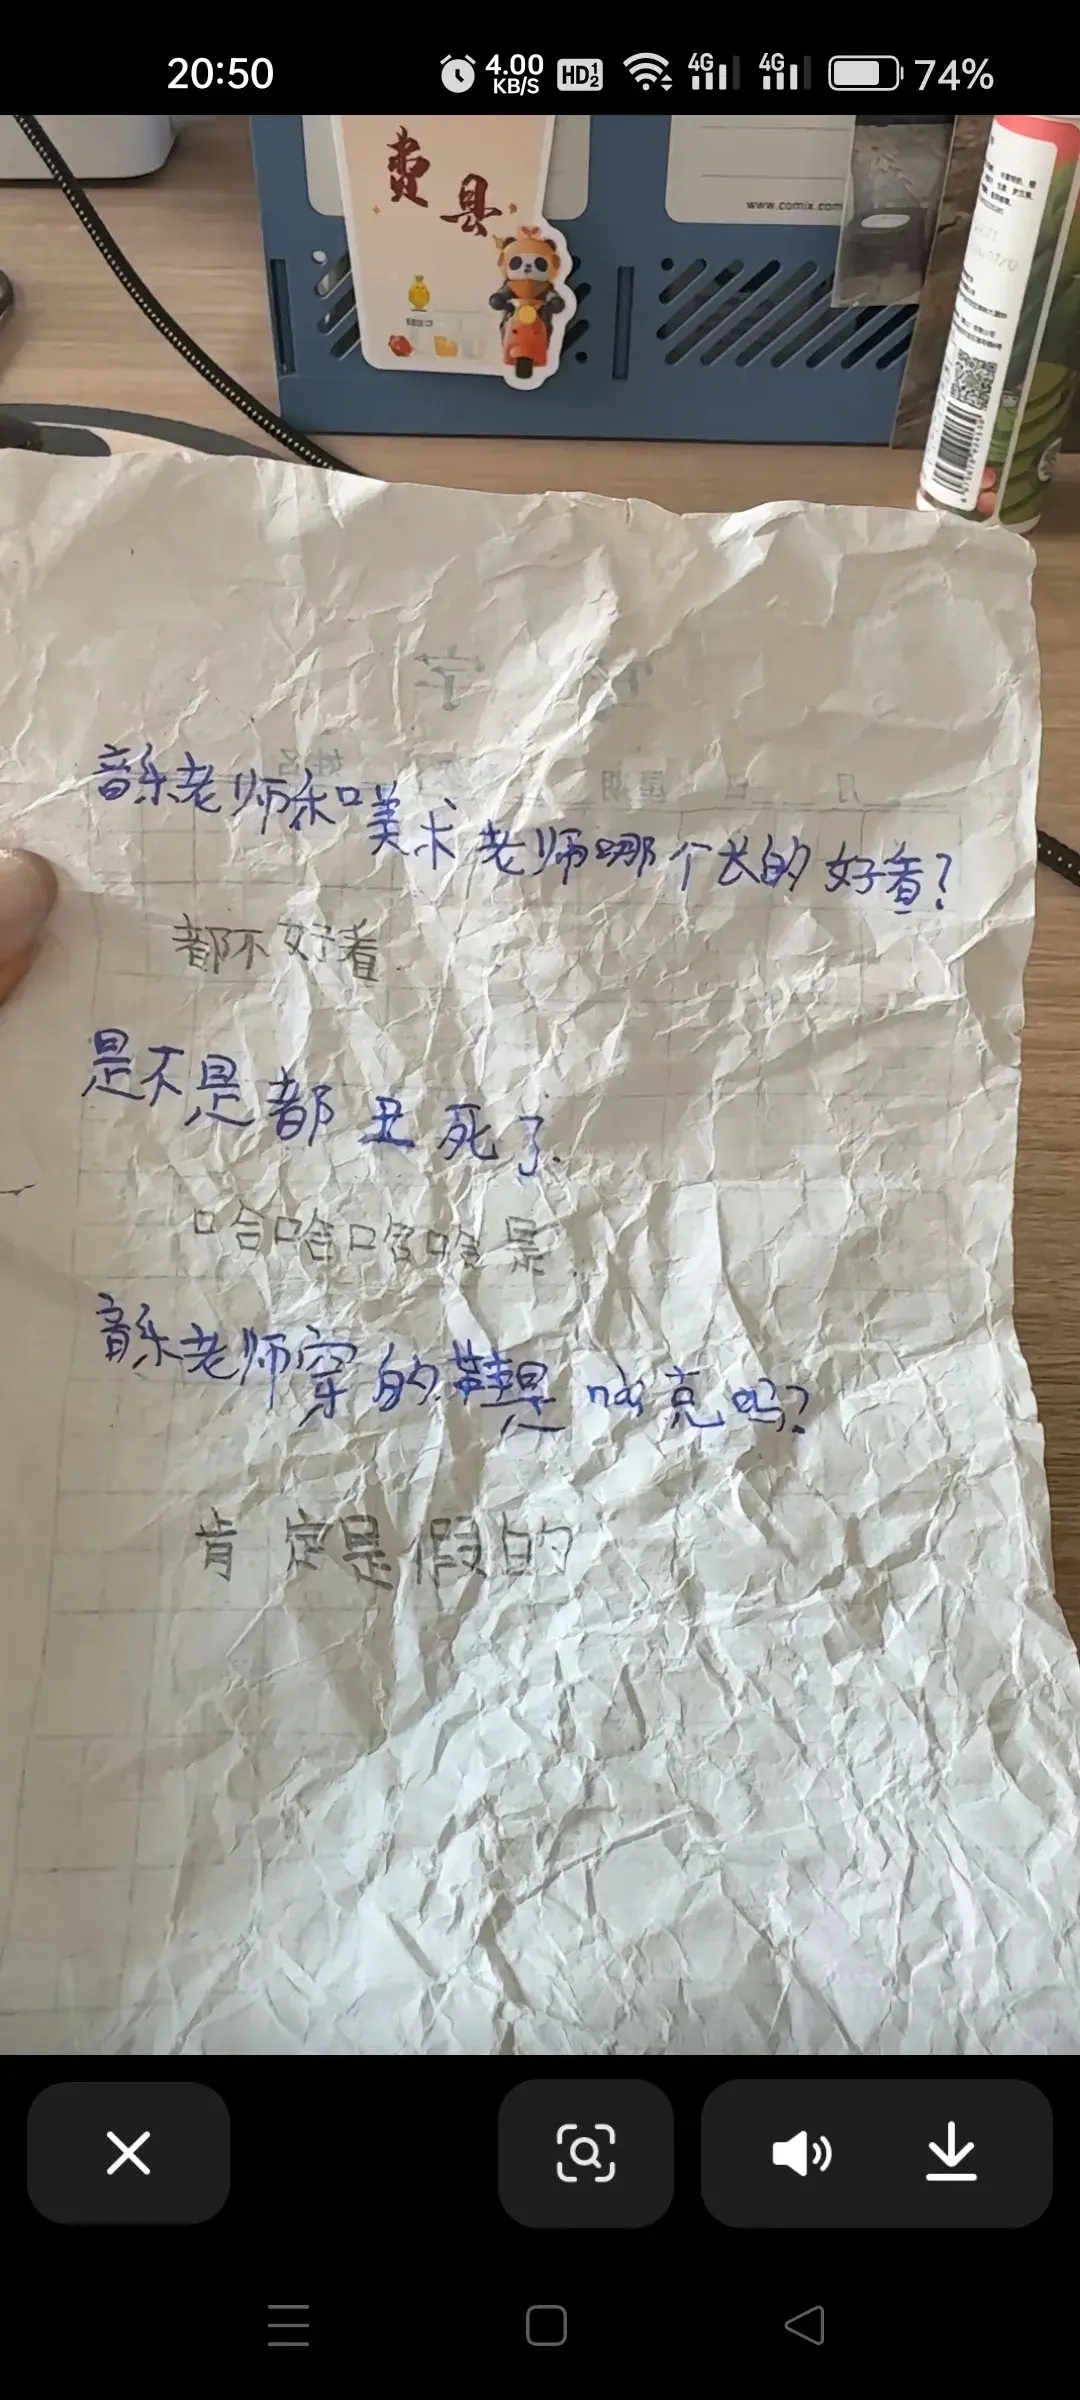 20:50
4.00 KB/S
HD 1 2
4G
4G
74%
费县
www.comix.com
音乐老师和美术老师哪个长的好看?
都不好看
是不是都丑死了.
哈哈哈哈是.
音乐老师穿的鞋是
克吗?
肯定是假的